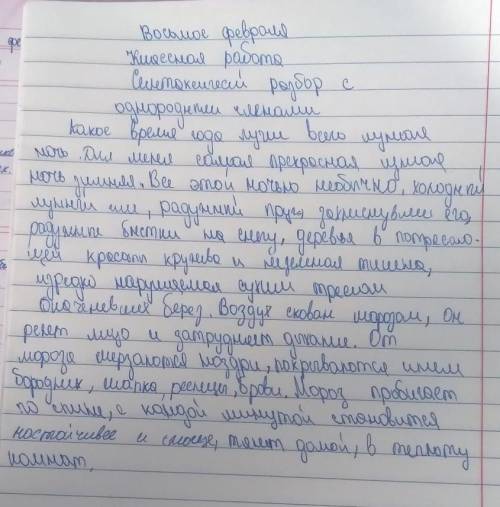 Восьмое февраля
Классная работа
Синтаксичесий разбор с
однороднтми членами
Какое время года лучи всего лунная
ночь. Для меня самая прекрасная лунная
ночь зимняя. Все этой ночью необычно, холоднтй
луннтй радужнтй круг, его,
радужнте блстки на снегу, деревья в потресаю-
щей красотт кружево и тишена,
изредко нарушаемая сухим треском
берез. Воздух скован морозам, он
режет лицо и затрудняет дхание. От
мороза смерзаются ноздри, покртваются инем
бородник, шапка, ресницт, брови. Мороз пробигает
по спине, с каждой минутой становится
настойчивее и тянет домой, в теплоту
комнат.